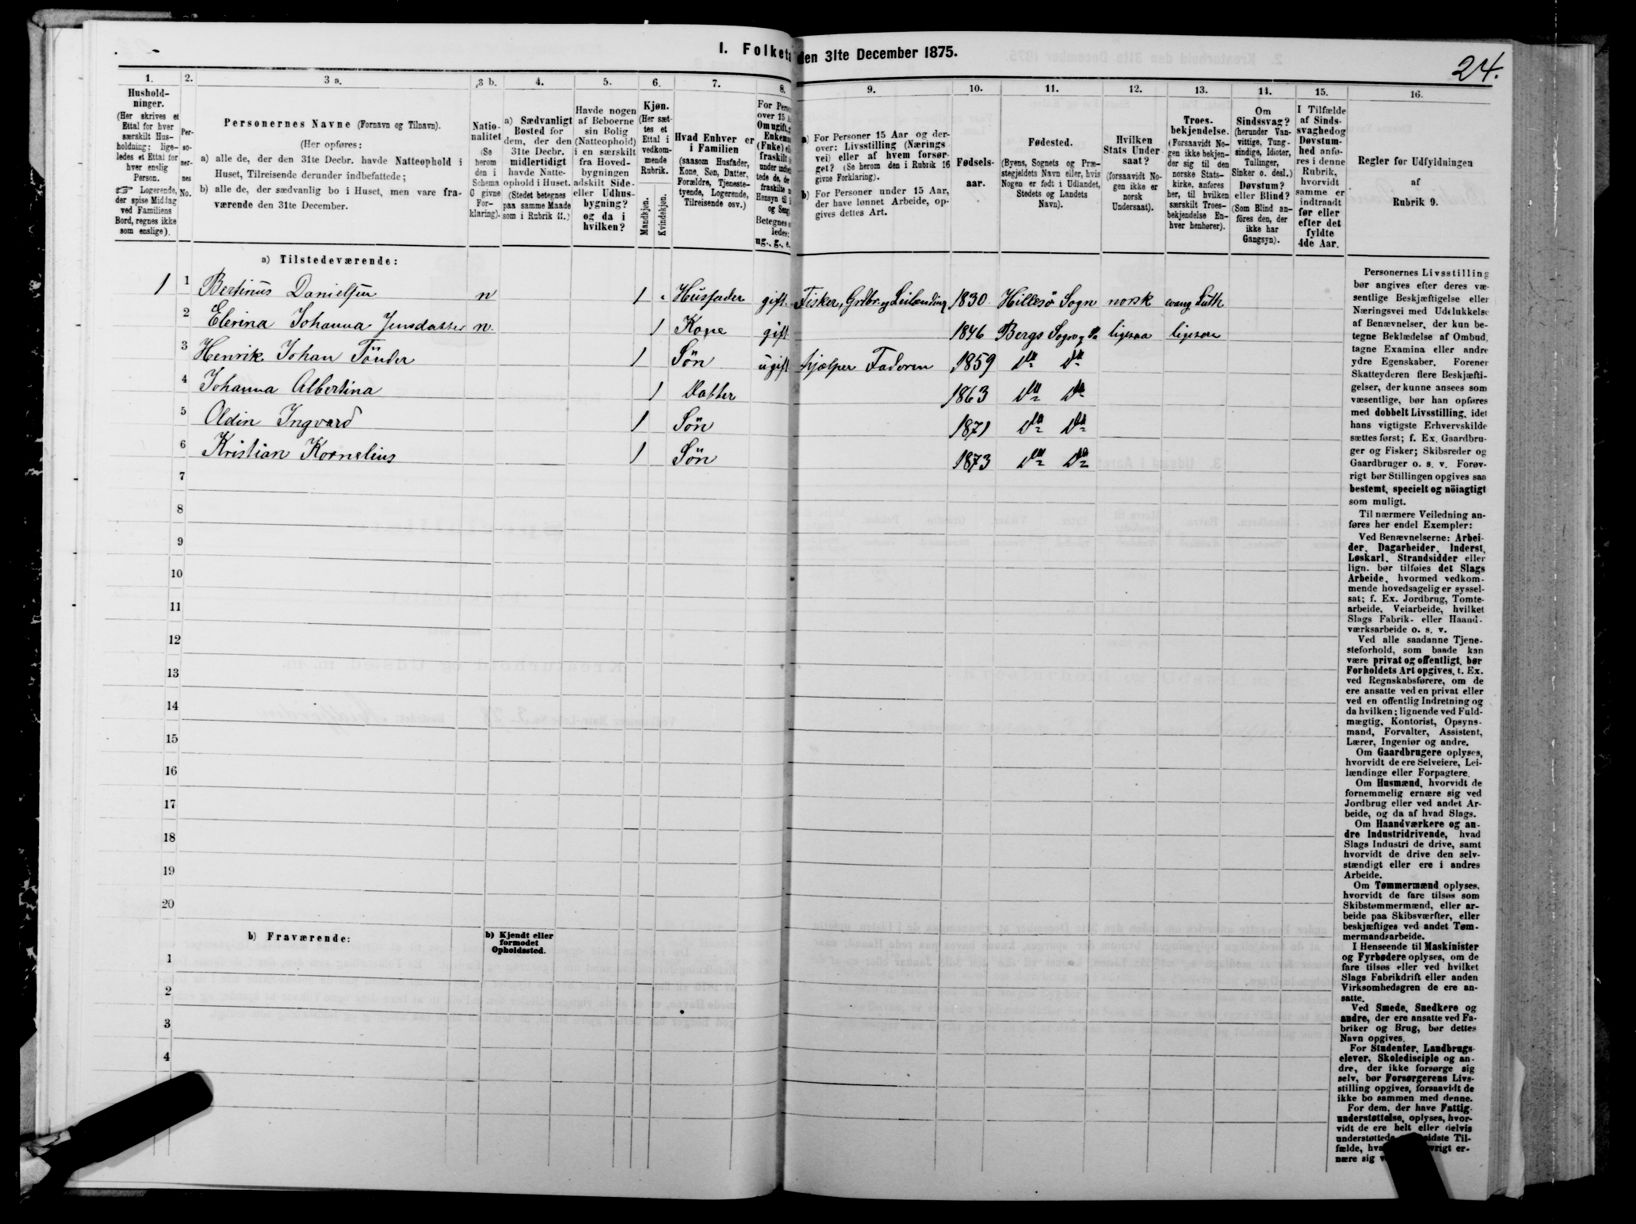 I. Folketæ
den 31te December 1875.
24.
1.
2.
3 a.
3 b.
4.
5.
6.
7.
8.
9.
10.
11.
12.
13.
14.
15.
16.
Hushold-
ninger.
(Her skrives et
Ettal for hver
særskilt Hus-
holdning; lige-
ledes et Ettal for
hver enslig
Person.
Logerende,
der spise Middag
ved Familiens
Bord, regnes ikke
som enslige).
Per-
so-
ner-
nes
No.
Personernes Navne (Fornavn og Tilnavn).
(Her opføres:
a) alle de, der den 31te Decbr. havde Natteophold i
Huset, Tilreisende derunder indbefattede;
b) alle de, der sædvanlig bo i Huset, men vare fra-
værende den 31te December.
Natio-
nalitet
(Se
herom
den i
Schema
O givne
For-
klaring).
a) Sædvanligt
Bosted for
dem, der den
31te Decbr.
midlertidigt
havde Natte-
ophold i Huset.
(Stedet betegnes
paa samme Maade
som i Rubrik 11.)
Havde nogen
af Beboerne
sin Bolig
(Natteophold)
i en særskilt
fra Hoved-
bygningen
adskilt Side-
eller Udhus-
bygning?
og da i
hvilken?
Kjøn.
(Her sæt-
tes et
Ettal i
vedkom-
mende
Rubrik.
Mandkjøn.
Kvindekjøn.
Hvad Enhver er
i Familien
(saasom Husfader,
Kone, Søn, Datter,
Forældre, Tjeneste-
tyende, Logerende,
Tilreisende osv.)
For Perso
over 15 A
Om ugift, g
Enkema
(Fnke) el
fraskilt
ug., g., e.
a) For Personer 15 Aar og der-
over: Livsstilling (Nærings
vei) eller af hvem forsør-
get? (Se herom den i Rubrik 16
givne Forklaring).
b) For Personer under 15 Aar,
der have lønnet Arbeide, op-
gives dettes Art.
Fødsels-
aar.
Fødested.
(Byens, Sognets og Præ-
stegjeldets Navn eller, hvis
Nogen er født i Udlandet,
Stedets og Landets
Navn).
Hvilken
Stats Under
saat?
(forsaavidt No-
gen ikke er
norsk
Undersaat).
Troes-
bekjendelse.
(Forsaavidt No-
gen ikke bekjen-
der sig til den
norske Stats-
kirke, anføres
her, til hvilken
særskilt Troes-
bekjendelse En-
hver henhører).
Om
Sindssvag?
(herunder Van-
vittige, Tung-
sindige, Idioter,
Tullinger,
Sinker o. desl.)
Døvstum?
eller Blind?
(Som Blind an-
føres den, der
ikke har
Gangsyn).
I Tilfælde
af Sinds-
svaghed og
Døvstum-
hed anfø-
res i denne
Rubrik,
hvorvidt
samme er
indtraadt
før eller
efter det
fyldte
4de Aar.
Regler for Udfyldningen
af
Rubrik 9.
a) Tilstedeværende:
1 1 Bertinus Danielsen n 1 Husfader gift Fisker, Grdbr. og Leilænding 1830 Hillesø Sogn norsk evang Luth
2 Elerina Johanna Jensdatter n 1 Kone gift 1846 Bergs Sogn ligesaa ligesaa
3 Henrik Johan Tønder 1 Søn ugift hjelper Faderen 1859 Do Do
4 Johanna Albertina 1 Datter 1863 Do Do
5 Oldin Ingvard 1 Søn 1871 Do Do
6 Kristian Kornelius 1 Søn 1873 Do Do
7
8
9
10
11
12
13
14
15
16
17
18
19
20
b) Fraværende:
b) Kjendt eller
formodet
Opholdssted.
1
2
3
4
Personernes Livsstilling
bør angives efter deres væ-
sentlige Beskjæftigelse eller
Næringsvei med Udelukkelse
af Benævnelser, der kun be-
tegne Beklædelse af Ombud,
tagne Examina eller andre
ydre Egenskaber. Forener
Skatteyderen flere Beskjæfti-
gelser, der kunne ansees som
væsentlige, bør han opføres
med dobbelt Livsstilling, idet
hans vigtigste Erhvervskilde
sættes først; f. Ex. Gaardbru-
ger og Fisker; Skibsreder og
Gaardbruger o. s. v. Forøv-
rigt bør Stillingen opgives saa
bestemt, specielt og nöiagtigt
som muligt.
Til nærmere Veiledning an-
føres her endel Exempler:
Ved Benævnelserne: Arbei-
der, Dagarbeider, Inderst,
Løskarl, Strandsidder eller
lign. bør tilføies det Slags
Arbeide, hvormed vedkom-
mende hovedsagelig er syssel-
sat; f. Ex. Jordbrug, Tomte-
arbeide, Veiarbeide, hvilket
Slags Fabrik- eller Haand-
værksarbeide o. s. v.
Ved alle saadanne Tjene-
steforhold, som baade kan
være privat og offentligt, bør
Forholdets Art opgives, t. Ex.
ved Regnskabsførere, om de
ere ansatte ved en privat eller
ved en offentlig Indretning og
da hvilken; lignende ved Fuld-
mægtig, Kontorist, Opsyns-
mand, Forvalter, Assistent,
Lærer, Ingeniør og andre.
Om Gaardbrugere oplyses,
hvorvidt de ere Selveiere, Lei-
lændinge eller Forpagtere.
Om Husmænd, hvorvidt de
fornemmelig ernære sig ved
Jordbrug eller ved andet Ar-
beide, og da af hvad Slags.
Om Haandværkere og an-
dre Industridrivende, hvad
Slags Industri de drive, samt
hvorvidt de drive den selv-
stændigt eller ere i andres
Arbeide.
Om Tømmermænd oplyses,
hvorvidt de fare tilsøs som
Skibstømmermænd, eller ar-
beide paa Skibsværfter, eller
beskjæftiges ved andet Tøm-
mermandsarbeide.
I Henseende til Maskinister
og Fyrbødere oplyses, om de
fare tilsøs eller ved hvilket
Slags Fabrikdrift eller anden
Virksomhedsgren de ere an-
satte.
Ved Smede, Snedkere og
andre, der ere ansatte ved Fa-
briker og Brug, bør dettes
Navn opgives.
For Studenter, Landbrugs-
elever, Skoledisciple og an-
dre, der ikke forsørge sig
selv, bør Forsørgerens Livs-
stilling opgives, forsaavidt de
ikke bo sammen med denne.
For dem, der have Fattig-
understøttelse, oplyses, hvor-
vidt de ere helt eller delvis
understøttede